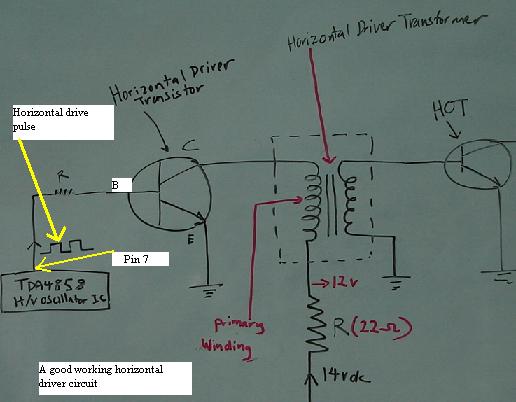 Horizontal Driver Transformer
Horizontal Driver
Transistor
HOT
Horizontal drive
pulse
C
R
B
E
Pin 7
TDA4858
H/V oscillator IC
→12v
primary
winding
R (22Ω)
14vdc
A good working horizontal
driver circuit